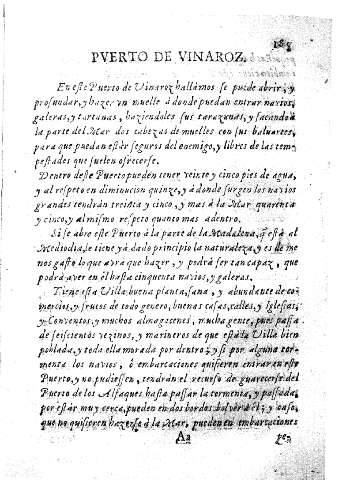 PVERTO DE VINAROZ.
En este Puerto de Vinaroz hallamos se puede abrir, y
profundar, y hazer vn muelle à donde puedan entrar navios,
galeras, y tartanas, haziendoles sus tarazanas, y sacando à
la parte del Mar dos cabezas de muelles con sus baluartes,
para que puedan estàr seguros del enemigo, y libres de las tem-
pestades que suelen ofrecerse.
Dentro deste Puerto pueden tener veinte y cinco pies de agua,
y al respeto en diminucion quinze, y à donde surgen los navios
grandes tendràn treinta y cinco, y mas à la Mar quarenta
y cinco, y al mismo respeto quanto mas adentro.
Si se abre este Puerto à la parte de la Madalena, q̃ està al
Mediodia, se tiene yà dado principio la naturaleza, y es de me
nos gasto lo que avrà que hazer, y podrà ser tan capaz, que
podrà aver en èl hasta cinquenta navios, y galeras.
Tiene esta Villa buena planta, sana, y abundante de co-
mercios, y frutos de todo genero, buenas casas, calles, y Iglesias,
y Conventos, y muchos almagazenes, mucha gente, pues passa
de seiscientos vezinos, y marineros de que està la Villa bien
poblada, y toda ella morada por dentro; y si por alguna tor-
menta los navios, ò embarcaciones quisieren entrar en este
Puerto, y no pudiessen, tendràn el recurso de guarecerse del
Puerto de los Alfaques hasta passar la tormenta, y passada,
por estàr muy cerca, pueden en dos bordos bolver à èl; y caso,
que no quisieren hazerse à la Mar, pueden en embarcaciones
Aa
pe-